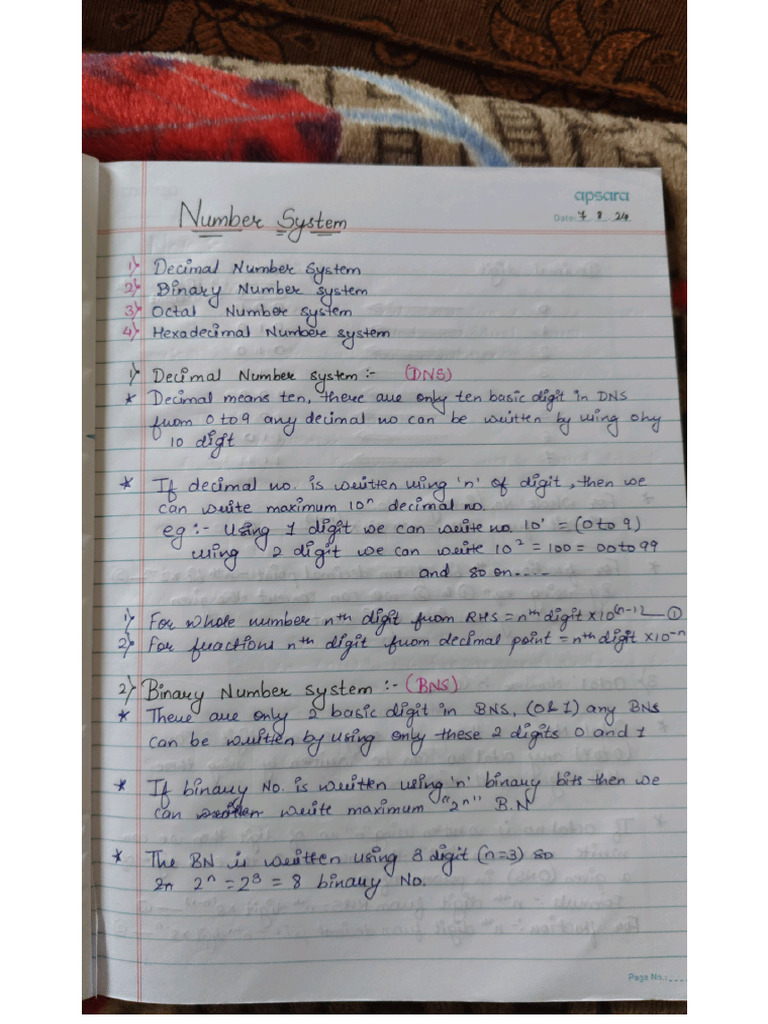 apsara
Number System
Date: 7 8 24
1) Decimal Number System
2) Binary Number system
3) Octal Number system
4) Hexadecimal Number system
1) Decimal Number system :- (DNS)
* Decimal means ten, there are only ten basic digit in DNS
from 0 to 9 any decimal no can be written by using only
10 digit
* If decimal no. is written using 'n' of digit, then we
can write maximum 10ⁿ decimal no.
eg :- Using 1 digit we can write no. 10¹ = (0 to 9)
using 2 digit we can write 10² = 100 = 00 to 99
and so on....
1) For whole number nth digit from RHS = nth digit x10⁽ⁿ⁻¹⁾ — ①
2) For fractions nth digit from decimal point = nth digit x10⁻ⁿ
2) Binary Number System :- (BNS)
* There are only 2 basic digit in BNS, (0 & 1) any BNs
can be written by using only these 2 digits 0 and 1
* If binary No. is written using 'n' binary bits then we
can write maximum "2ⁿ" B.N
* The BN is written using 3 digit (n=3) so
2n 2ⁿ = 2³ = 8 binary No.
Page No.: